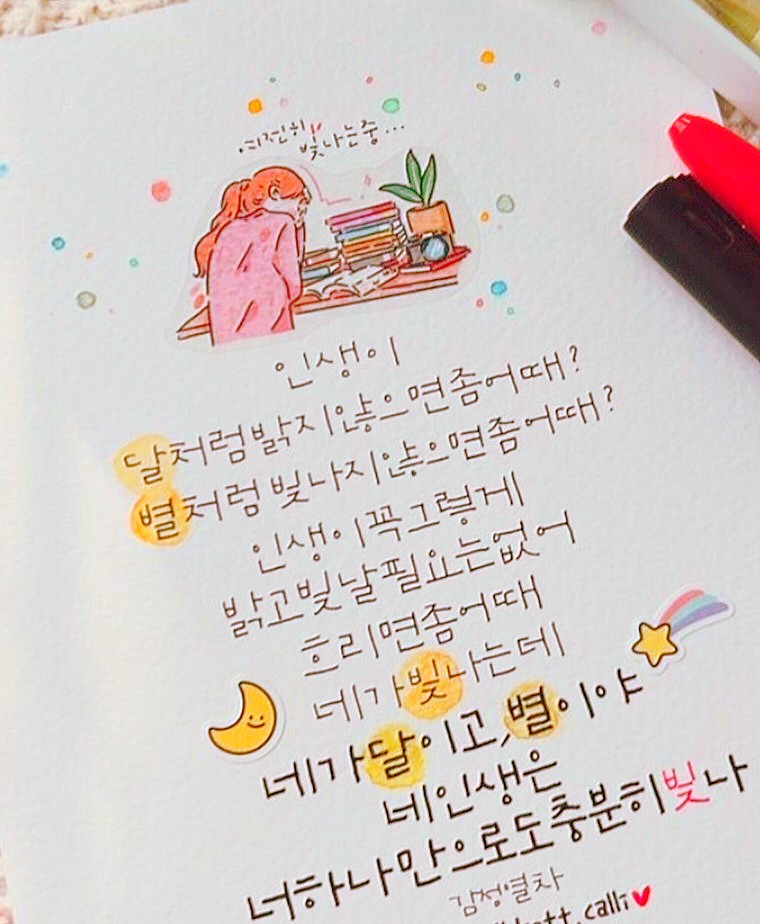 여전히 빛나는중...
인생이
달처럼밝지않으면좀어때?
별처럼빛나지않으면좀어때?
인생이꼭그렇게
밝고빛날필요는없어
흐리면좀어때
네가빛나는데
네가달이고,별이야
네인생은
너하나만으로도충분히빛나
감정열차
.calli